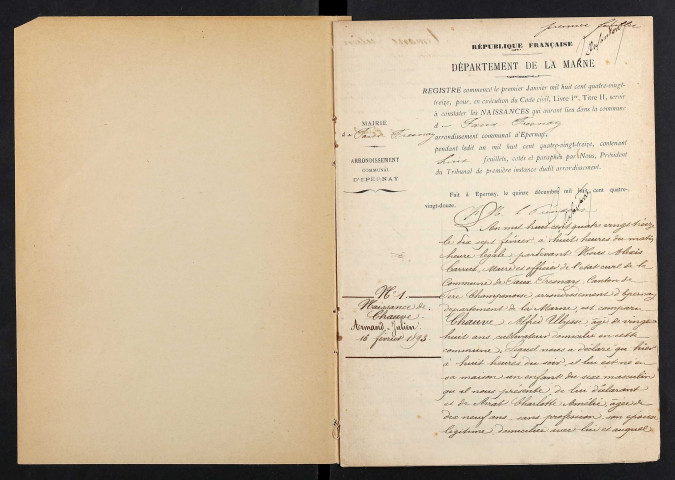 premier feuillet
RÉPUBLIQUE FRANÇAISE
DÉPARTEMENT DE LA MARNE
REGISTRE commencé le premier Janvier mil huit cent quatre-vingt-
treize, pour, en exécution du Code civil, Livre Ier, Titre II, servir
à constater les NAISSANCES qui auront lieu dans la commune
de Faux Fresnay
arrondissement communal d'Epernay,
pendant ledit an mil huit cent quatre-vingt-treize, contenant
feuillets, cotés et paraphés par Nous, Président
du Tribunal de première instance dudit arrondissement.
MAIRIE
de Faux Fresnay
ARRONDISSEMENT
COMMUNAL
D'EPERNAY
Fait à Epernay, le quinze décembre mil huit cent quatre-
vingt-douze.
N° 1
Naissance de
Chauve
Armand-Julien.
16 février 1893
L'an mil huit cent quatre vingt treize
le dix sept février à huit heures du matin
heure légale pardevant Nous Alexis
Maire et officier de l'état civil de la
Commune de Faux Fresnay, Canton de
Fère Champenoise, arrondissement d'Epernay
département de la Marne, est comparu
Chauve Alfred Ulysse âgé de vingt
huit ans cultivateur domicilié en cette
commune, lequel nous a déclaré que hier
à huit heures du soir, il lui est né en
sa maison un enfant du sexe masculin
qu'il nous présente, de lui déclarant
et de Charlotte Amélie, âgée de
dix neuf ans, sans profession, son épouse
légitime domiciliée avec lui et auquel